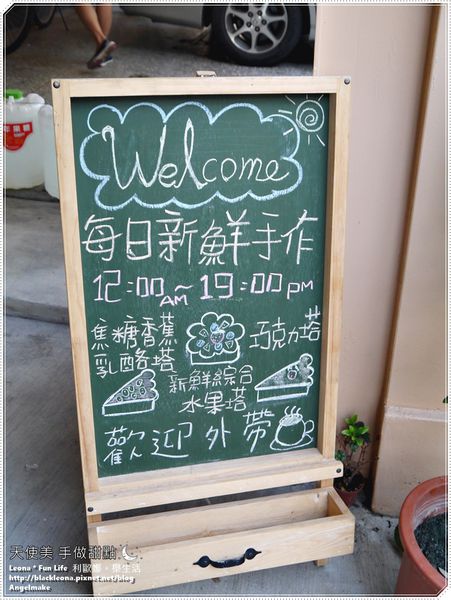 Welcome
每日新鮮手作
12:00AM~19:00PM
焦糖香蕉
乳酪塔
巧克力塔
新鮮綜合
水果塔
歡迎外帶
天使美 手做甜點
Leona * Fun Life 利歐娜。樂生活
http://blackleona.pixnet.net/blog
Angelmake